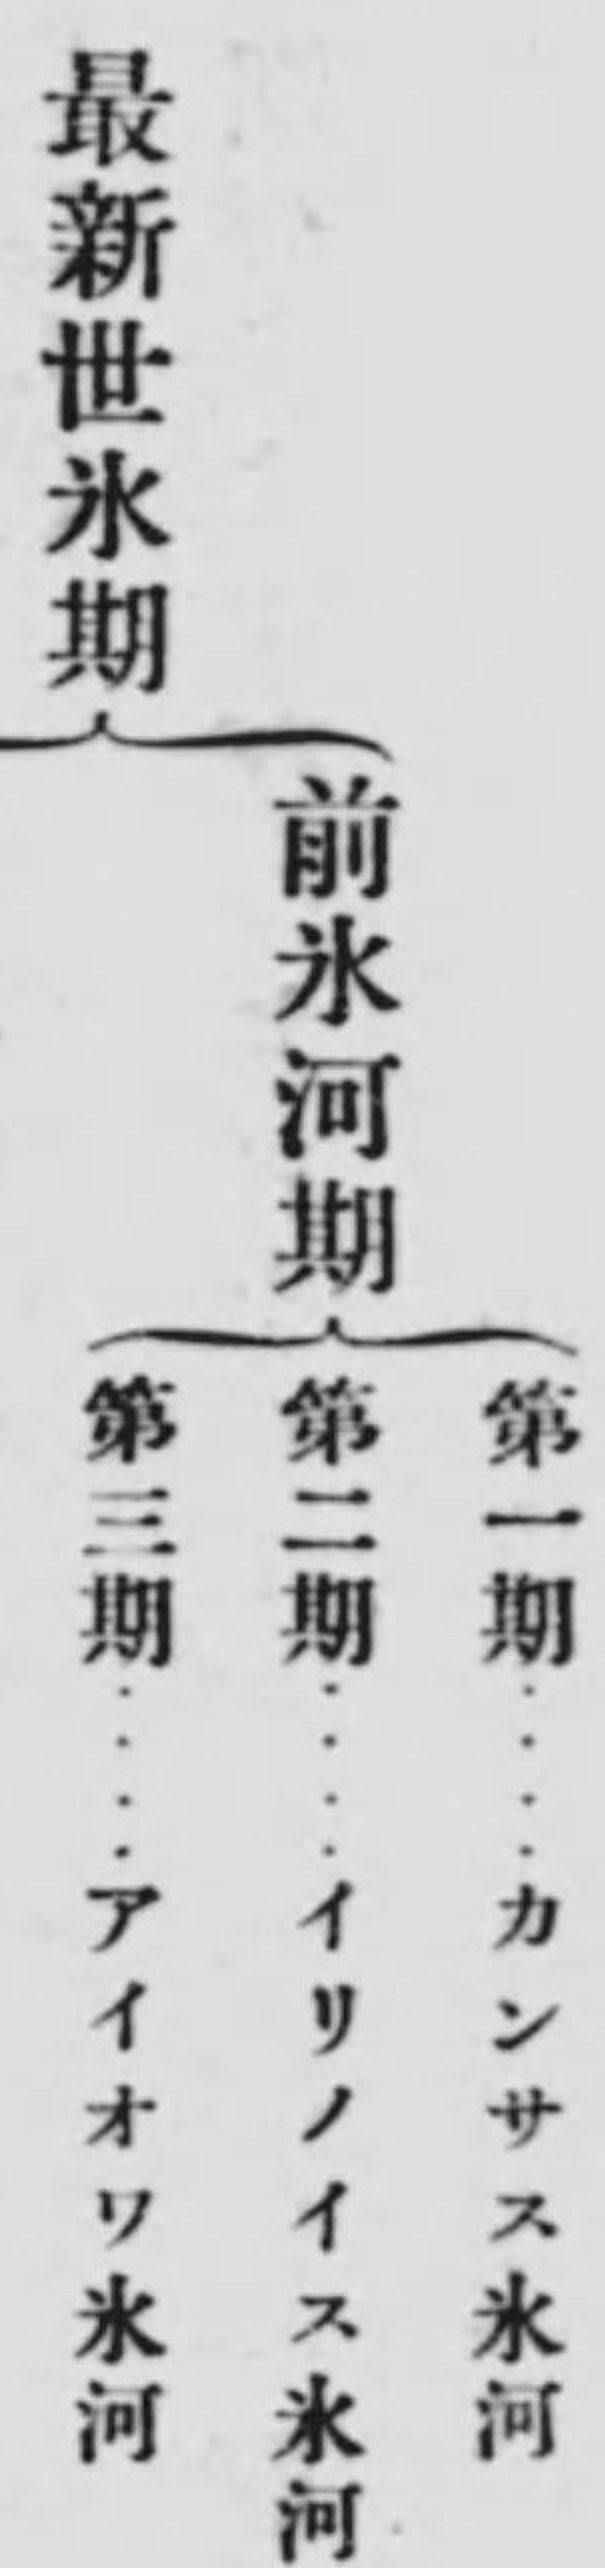 最新世氷期
前氷河期
第一期････カンサス氷河
第二期････イリノイス氷河
第三期････アイオワ氷河